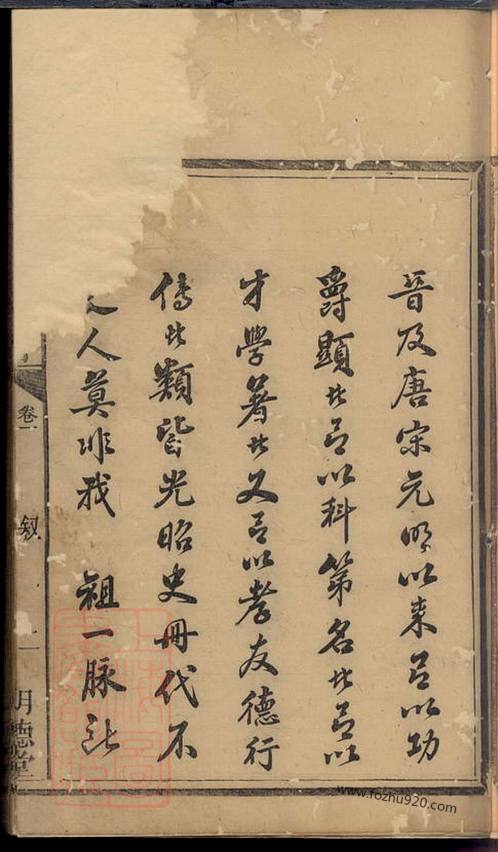 晋及唐宋元明以来有以功
爵顯者有以科第名者有以
才學著者又有以孝友德行
傳者類皆光昭史冊代不
乏人莫非我 祖一脉
卷一
叙
明德堂
www.fozhu920.com